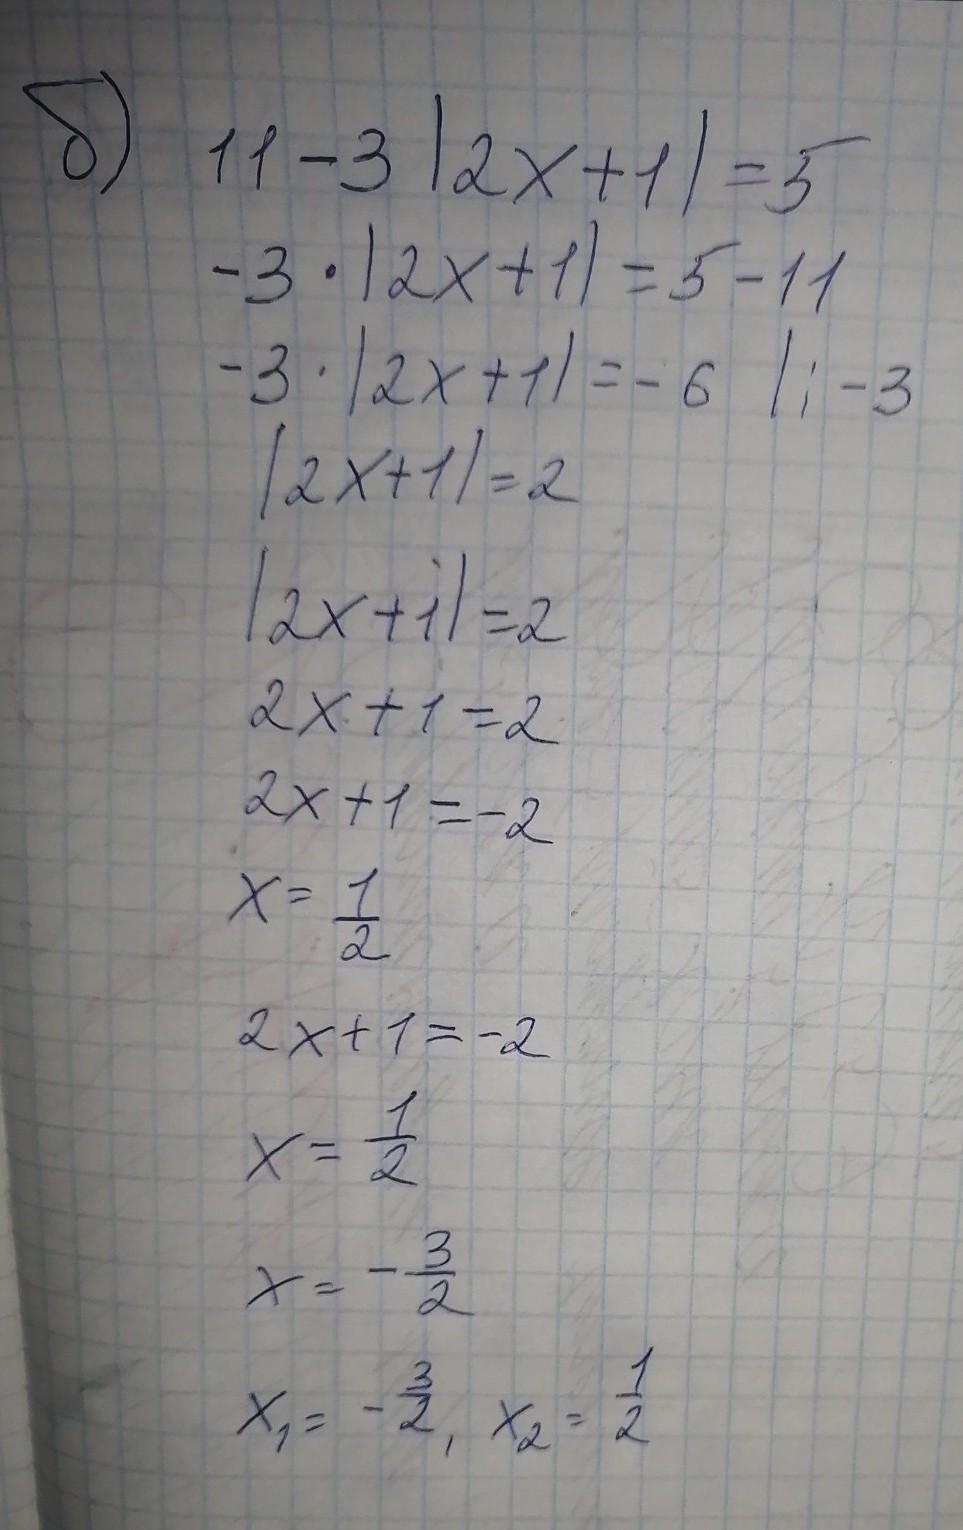 б) 11 - 3 |2x+1| = 5
-3 · |2x+1| = 5 - 11
-3 · |2x+1| = - 6 |: -3
|2x+1| = 2
|2x+1| = 2
2x+1 = 2
2x+1 = -2
x = 1/2
2x+1 = -2
x = 1/2
x = - 3/2
x₁ = - 3/2, x₂ = 1/2